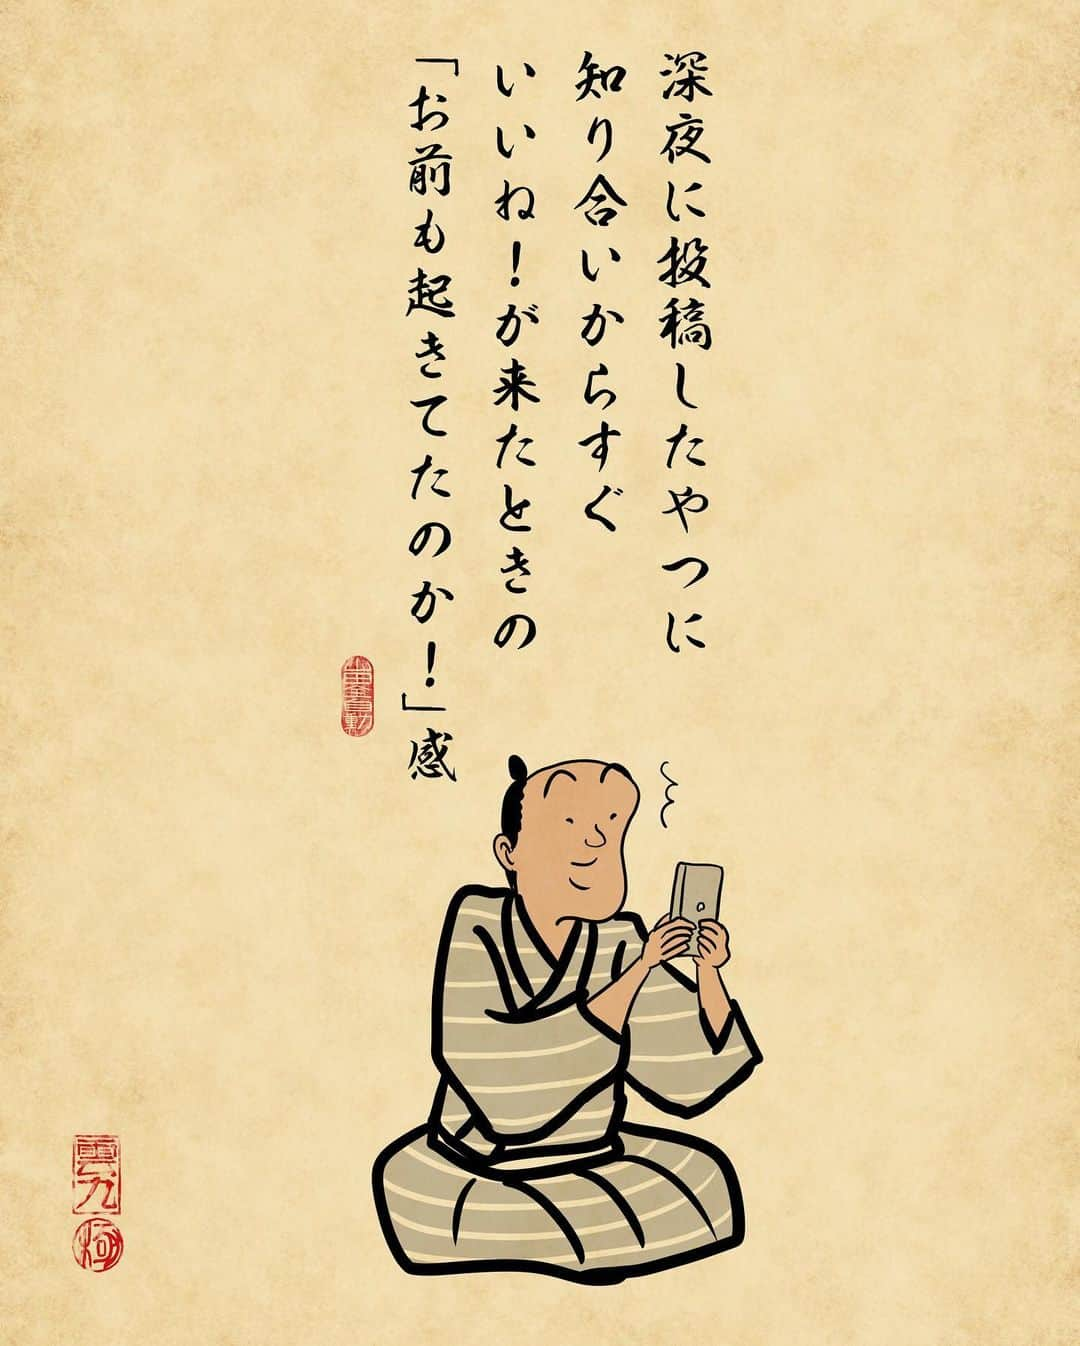 深夜に投稿したやつに
知り合いからすぐ
いいね！が来たときの
「お前も起きてたのか！」感
雲九
極